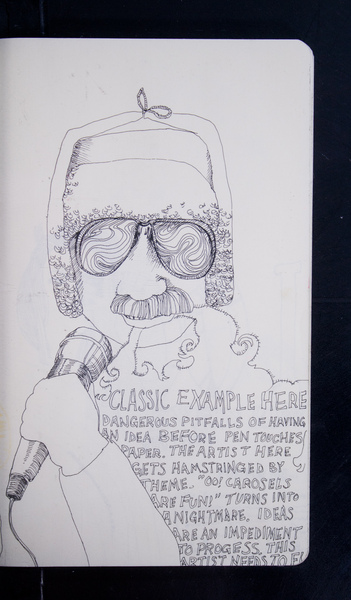 "CLASSIC EXAMPLE HERE
DANGEROUS PITFALLS OF HAVING
AN IDEA BEFORE PEN TOUCHES
PAPER. THE ARTIST HERE
GETS HAMSTRINGED BY
THEME. "OO! CAROSELS
ARE FUN!" TURNS INTO
A NIGHTMARE. IDEAS
ARE AN IMPEDIMENT
TO PROGESS. THIS
ARTIST NEEDS TO